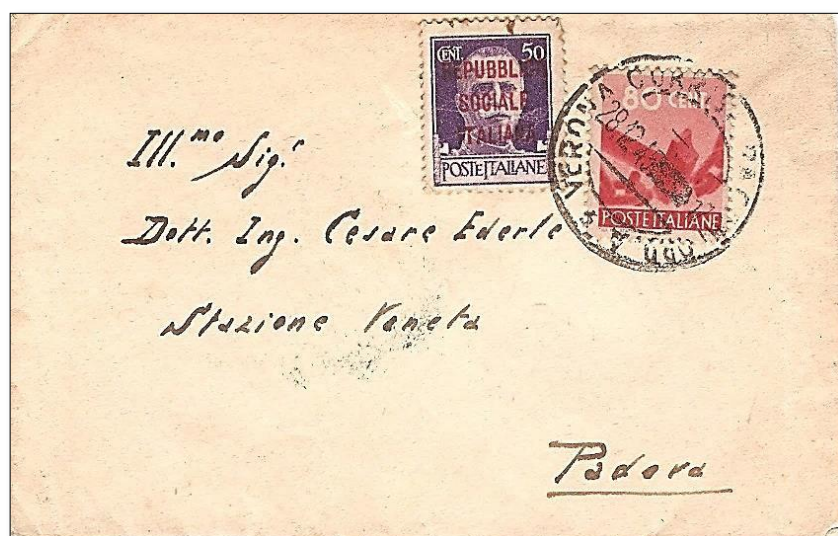 CENT. 50
REPUBBLICA
SOCIALE
ITALIANA
POSTE ITALIANE
80 CENT.
POSTE ITALIANE
VERONA CORR.
Ill.mo Sig.r
Dott. Ing. Cesare Ederle
Stazione Veneta
Padova